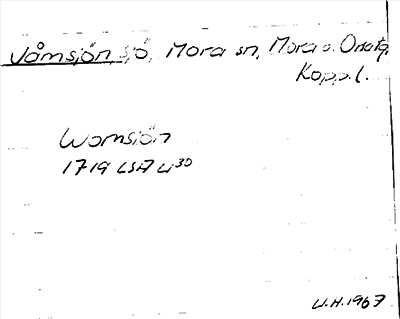 Våmsjön, sjö, Mora sn, Mora o. Orsa tg,
Kopp. l.
Womsiön
1719 LSA U30
U.H. 1967